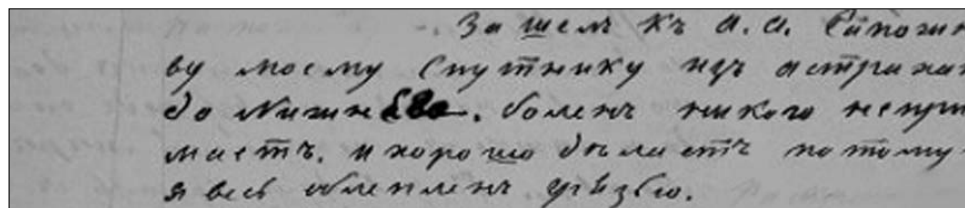 Зашелъ къ А. А. Сапожни
ву моему спутнику изъ Астрахан
до Нижн. боленъ никого непри
маетъ. и хорошо дѣлаетъ потому
я весь облепленъ грѣзью.